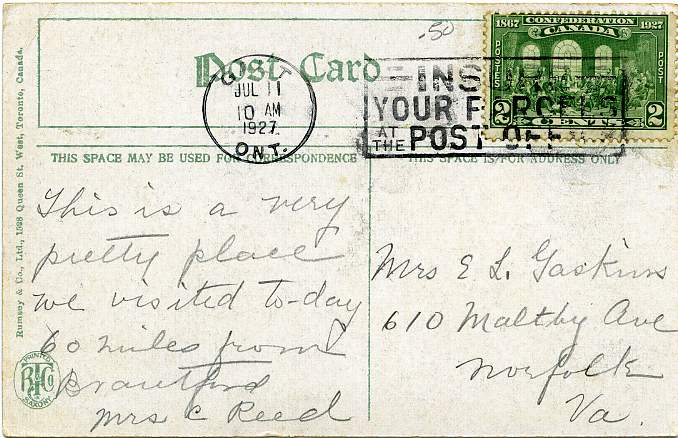 .50
1867 CONFEDERATION 1927
CANADA
POSTES POST
2 CENTS 2
Post Card
JUL 11
10 AM
1927
ONT.
YOUR
AT THE POST
THIS SPACE MAY BE USED FOR CORRESPONDENCE
THIS SPACE IS FOR ADDRESS ONLY
This is a very
pretty place
we visited to-day
60 miles from
Brantford
Mrs C Reed
Mrs E L. Gaskins
610 Maltby Ave
Norfolk
Va.
Rumsey & Co., Ltd., 1328 Queen St. West, Toronto, Canada.
PRINTED
SAXONY